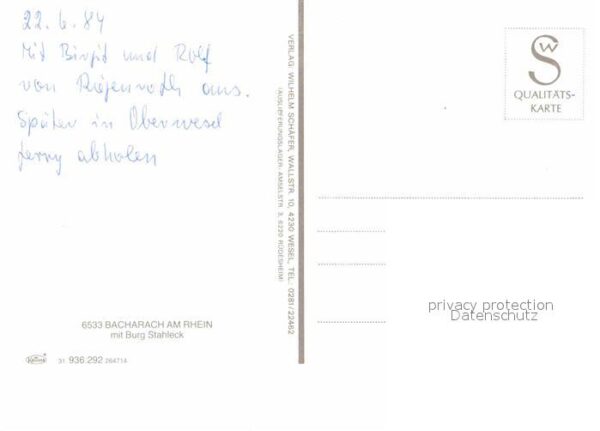 22.6.84
Mit Birgit und Rolf
von aus.
Später in Oberwesel
Jenny abholen
6533 BACHARACH AM RHEIN
mit Burg Stahleck
Krüger 31 936.292 264714
VERLAG: WILHELM SCHÄFER, WALLSTR. 10, 4230 WESEL, TEL.: 0281/22482
(AUSLIEFERUNGSLAGER: AMMELSTR. 3, 6220 RÜDESHEIM)
SW
QUALITÄTS-
KARTE
privacy protection
Datenschutz